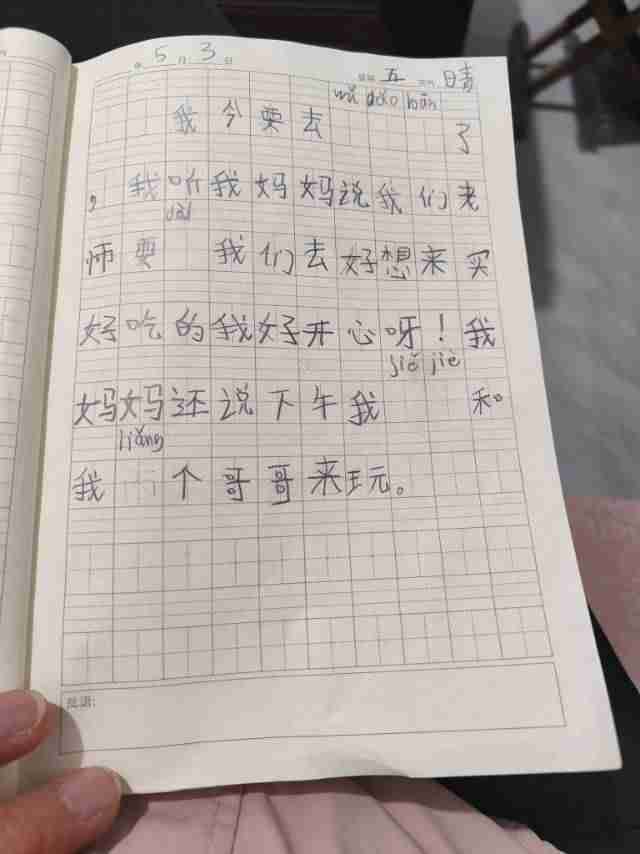 5月3日 星期五 天气晴
wǔ dǎo bān
我今要去 了
,我听我妈妈说我们老
dài
师要 我们去好想来买
好吃的我好开心呀!我
jiě jiè
妈妈还说下午我 和
liǎng
我 个哥哥来玩。
批语: